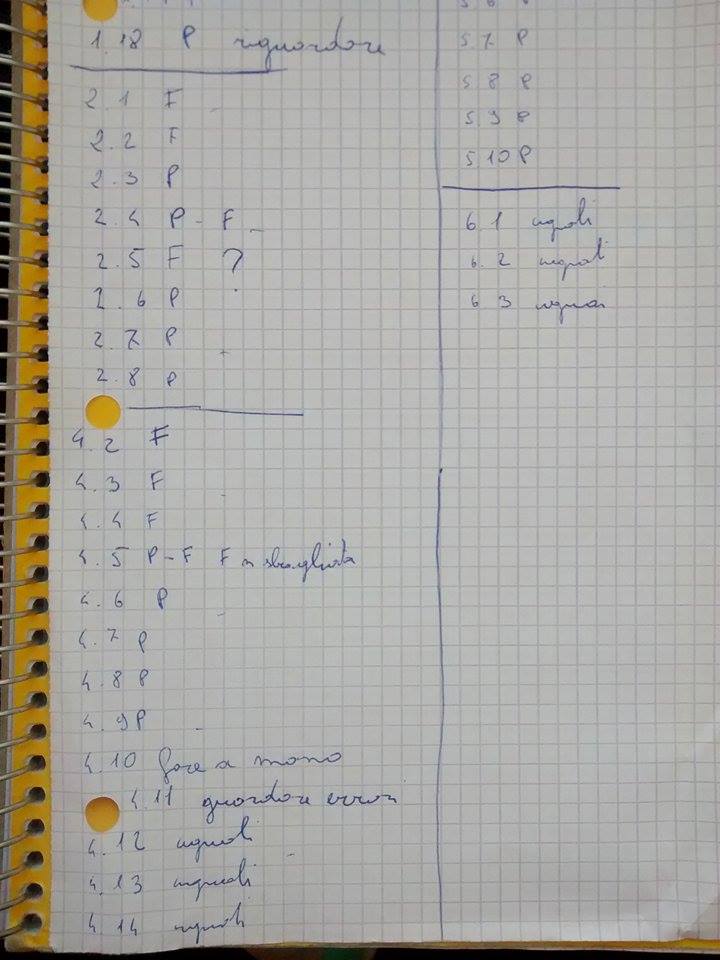 1.18 P riguardare
2.1 F
2.2 F
2.3 P
2.4 P - F
2.5 F ?
2.6 P
2.7 P
2.8 P
4.2 F
4.3 F
4.4 F
4.5 P - F F sbagliata
4.6 P
4.7 P
4.8 P
4.9 P
4.10 fare a mano
4.11 guardare errori
4.12 uguali
4.13 uguali
4.14 uguali
5 7 P
5 8 P
5 9 P
5 10 P
6.1 uguali
6.2 uguali
6 3 uguai